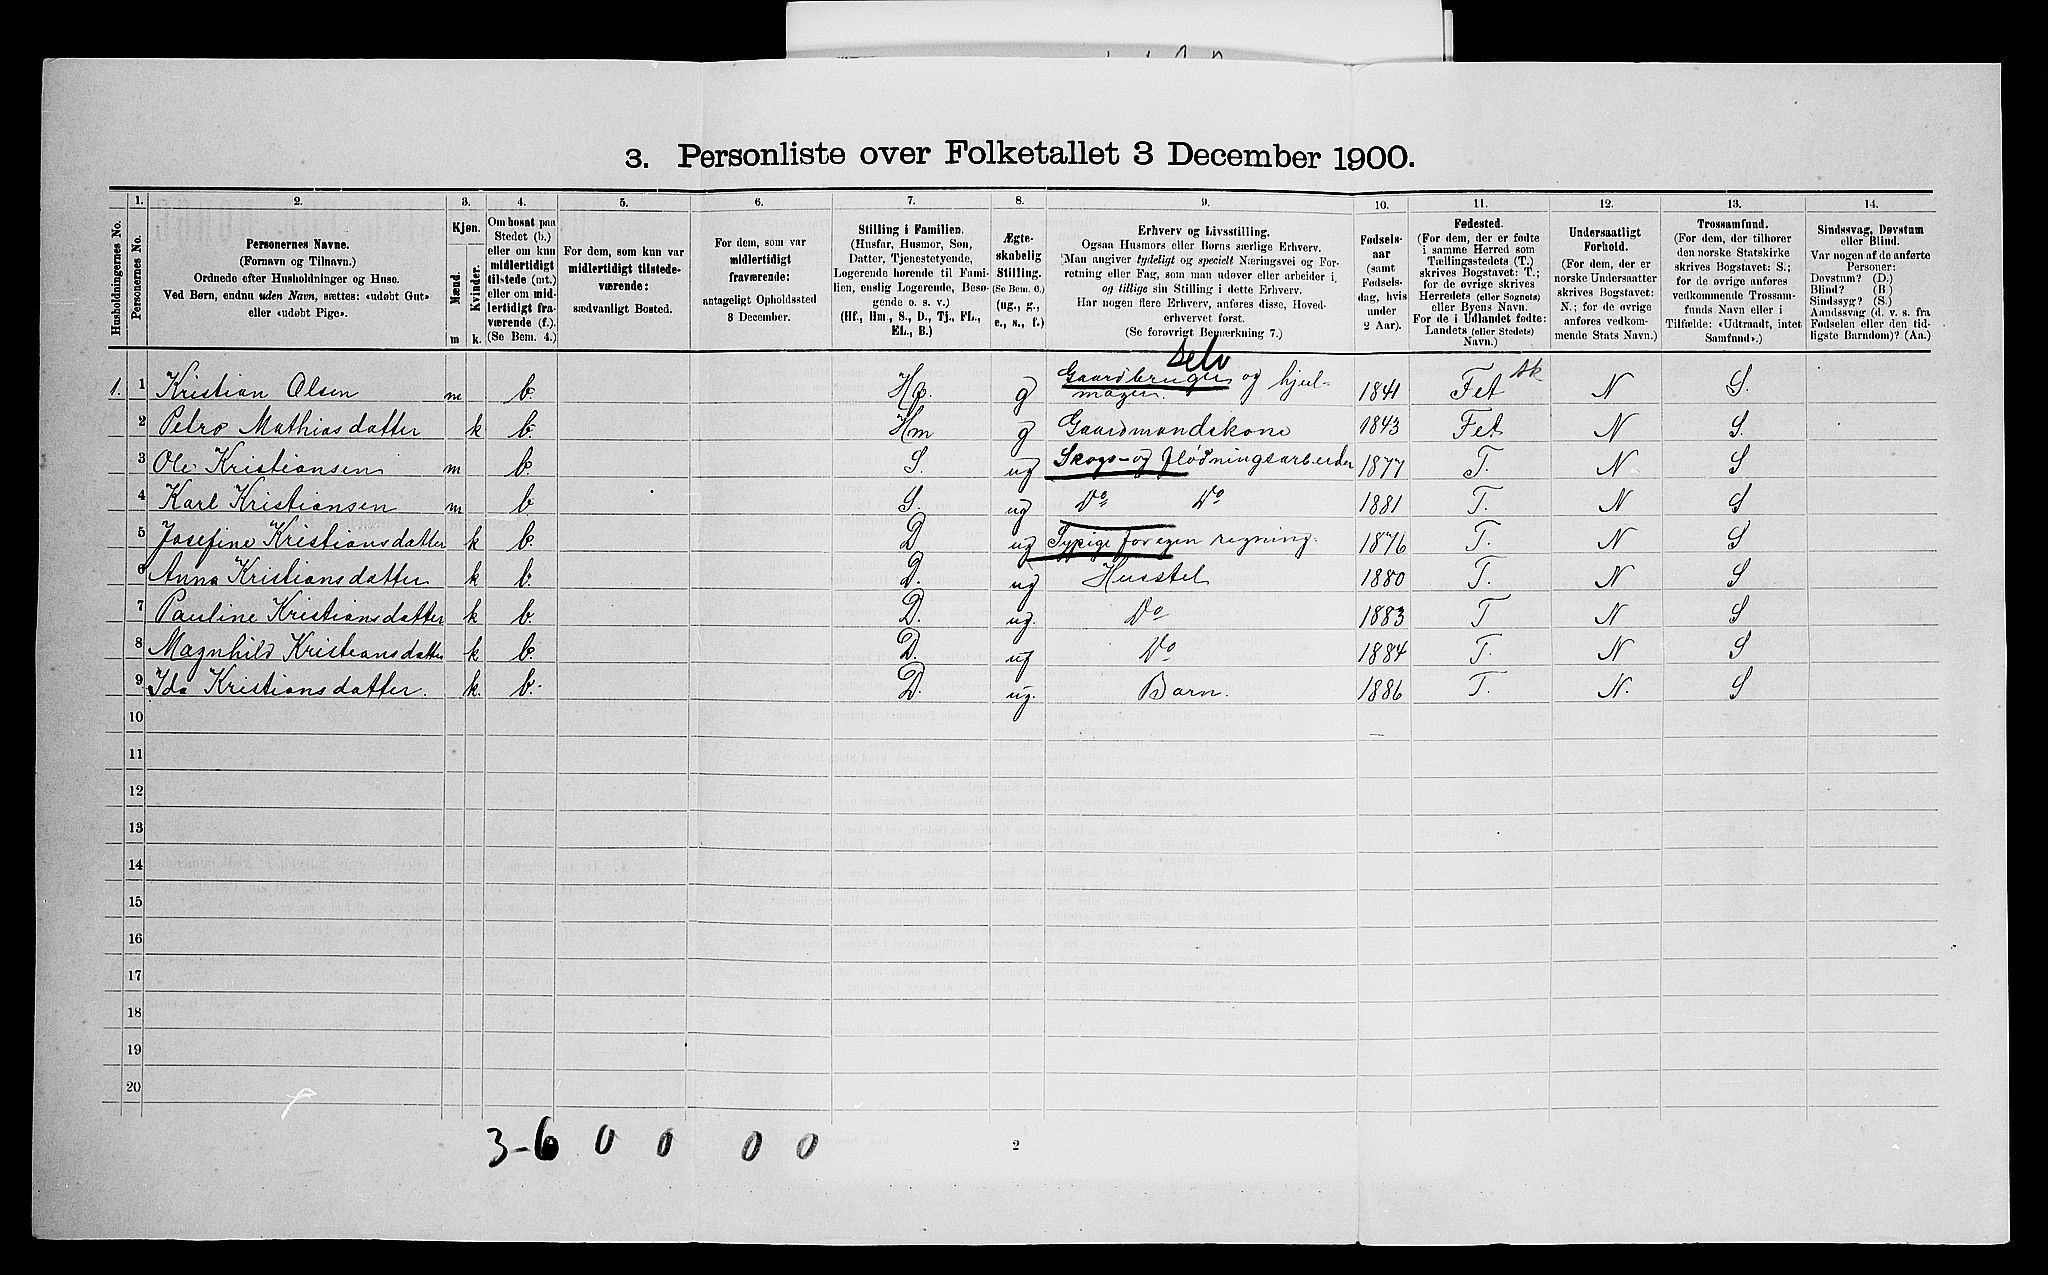 3. Personliste over Folketallet 3 December 1900.
1. 2. 3. 4. 5. 6. 7. 8. 9. 10. 11. 12. 13. 14.
Husholdningernes No.
Personernes No.
Personernes Navne.
(Fornavn og Tilnavn.)
Ordnede efter Husholdninger og Huse.
Ved Børn, endnu uden Navn, sættes: «udøbt Gut»
eller «udøbt Pige».
Kjøn.
Mænd.
Kvinder.
m k.
Om bosat paa
Stedet (b.)
eller om kun
midlertidigt
tilstede (mt.)
eller om mid-
lertidigt fra-
værende (f.).
(Se Bem. 4.)
For dem, som kun var
midlertidigt tilstede-
værende:
sædvanligt Bosted.
For dem, som var
midlertidigt
fraværende:
antageligt Opholdssted
3 December.
Stilling i Familien.
(Husfar, Husmor, Søn,
Datter, Tjenestetyende,
Logerende hørende til Fami-
lien, enslig Logerende, Besø-
gende o. s. v.)
(Hf., Hm., S., D., Tj., FL.,
EL., B.)
Ægte-
skabelig
Stilling.
(Se Bem. 6.)
(ug., g.,
e., s., f.)
Erhverv og Livsstilling.
Ogsaa Husmors eller Børns særlige Erhverv.
Man angiver tydeligt og specielt Næringsvei og For-
retning eller Fag, som man udøver eller arbeider i,
og tillige sin Stilling i dette Erhverv.
Har nogen flere Erhverv, anføres disse, Hoved-
erhvervet først.
(Se forøvrigt Bemærkning 7.)
Fødsels-
aar
(samt
Fødsels-
dag, hvis
under
2 Aar).
Fødested.
(For dem, der er fødte
i samme Herred som
Tællingsstedets (T.)
skrives Bogstavet: T.;
for de øvrige skrives
Herredets (eller Sognets)
eller Byens Navn.
For de i Udlandet fødte:
Landets (eller Stedets)
Navn.)
Undersaatligt
Forhold.
(For dem, der er
norske Undersaatter
skrives Bogstavet:
N.; for de øvrige
anføres vedkom-
mende Stats Navn.)
Trossamfund.
(For dem, der tilhører
den norske Statskirke
skrives Bogstavet: S.;
for de øvrige anføres
vedkommende Trossam-
funds Navn eller i
Tilfælde: «Udtraadt, intet
Samfund».)
Sindssvag, Døvstum
eller Blind.
Var nogen af de anførte
Personer:
Døvstum? (D.)
Blind? (B)
Sindssyg? (S.)
Aandssvag (d. v. s. fra
Fødselen eller den tid-
ligste Barndom)? (Aa.)
Selv
1. 1 Kristian Olsen m b. Hf. g Gaardbruger og hjul- 1841 Fet N S.
magen.
2 Petra Mathiasdatter k b. Hm g Gaardmandskone 1843 Fet N S.
3 Ole Kristiansen m b. S. ug Skogs- og flødningsarbeider 1877 T. N S
4 Karl Kristiansen m b S. ug Do Do 1881 T. N S
5 Josefine Kristiansdatter k b. D ug Sypige for egen regning. 1876 T. N S
6 Anna Kristiansdatter k b. D. ug Husstel 1880 T. N S
7 Pauline Kristiansdatter k b. D. ug. Do 1883 T N S
8 Magnhild Kristiansdatter k b. D. ug Do 1884 T. N S
9 Ida Kristiansdatter. k. b. D. ug. Barn. 1886 T. N. S
10
11
12
13
14
15
16
17
18
19
20
3-6 0 0 0 0
2